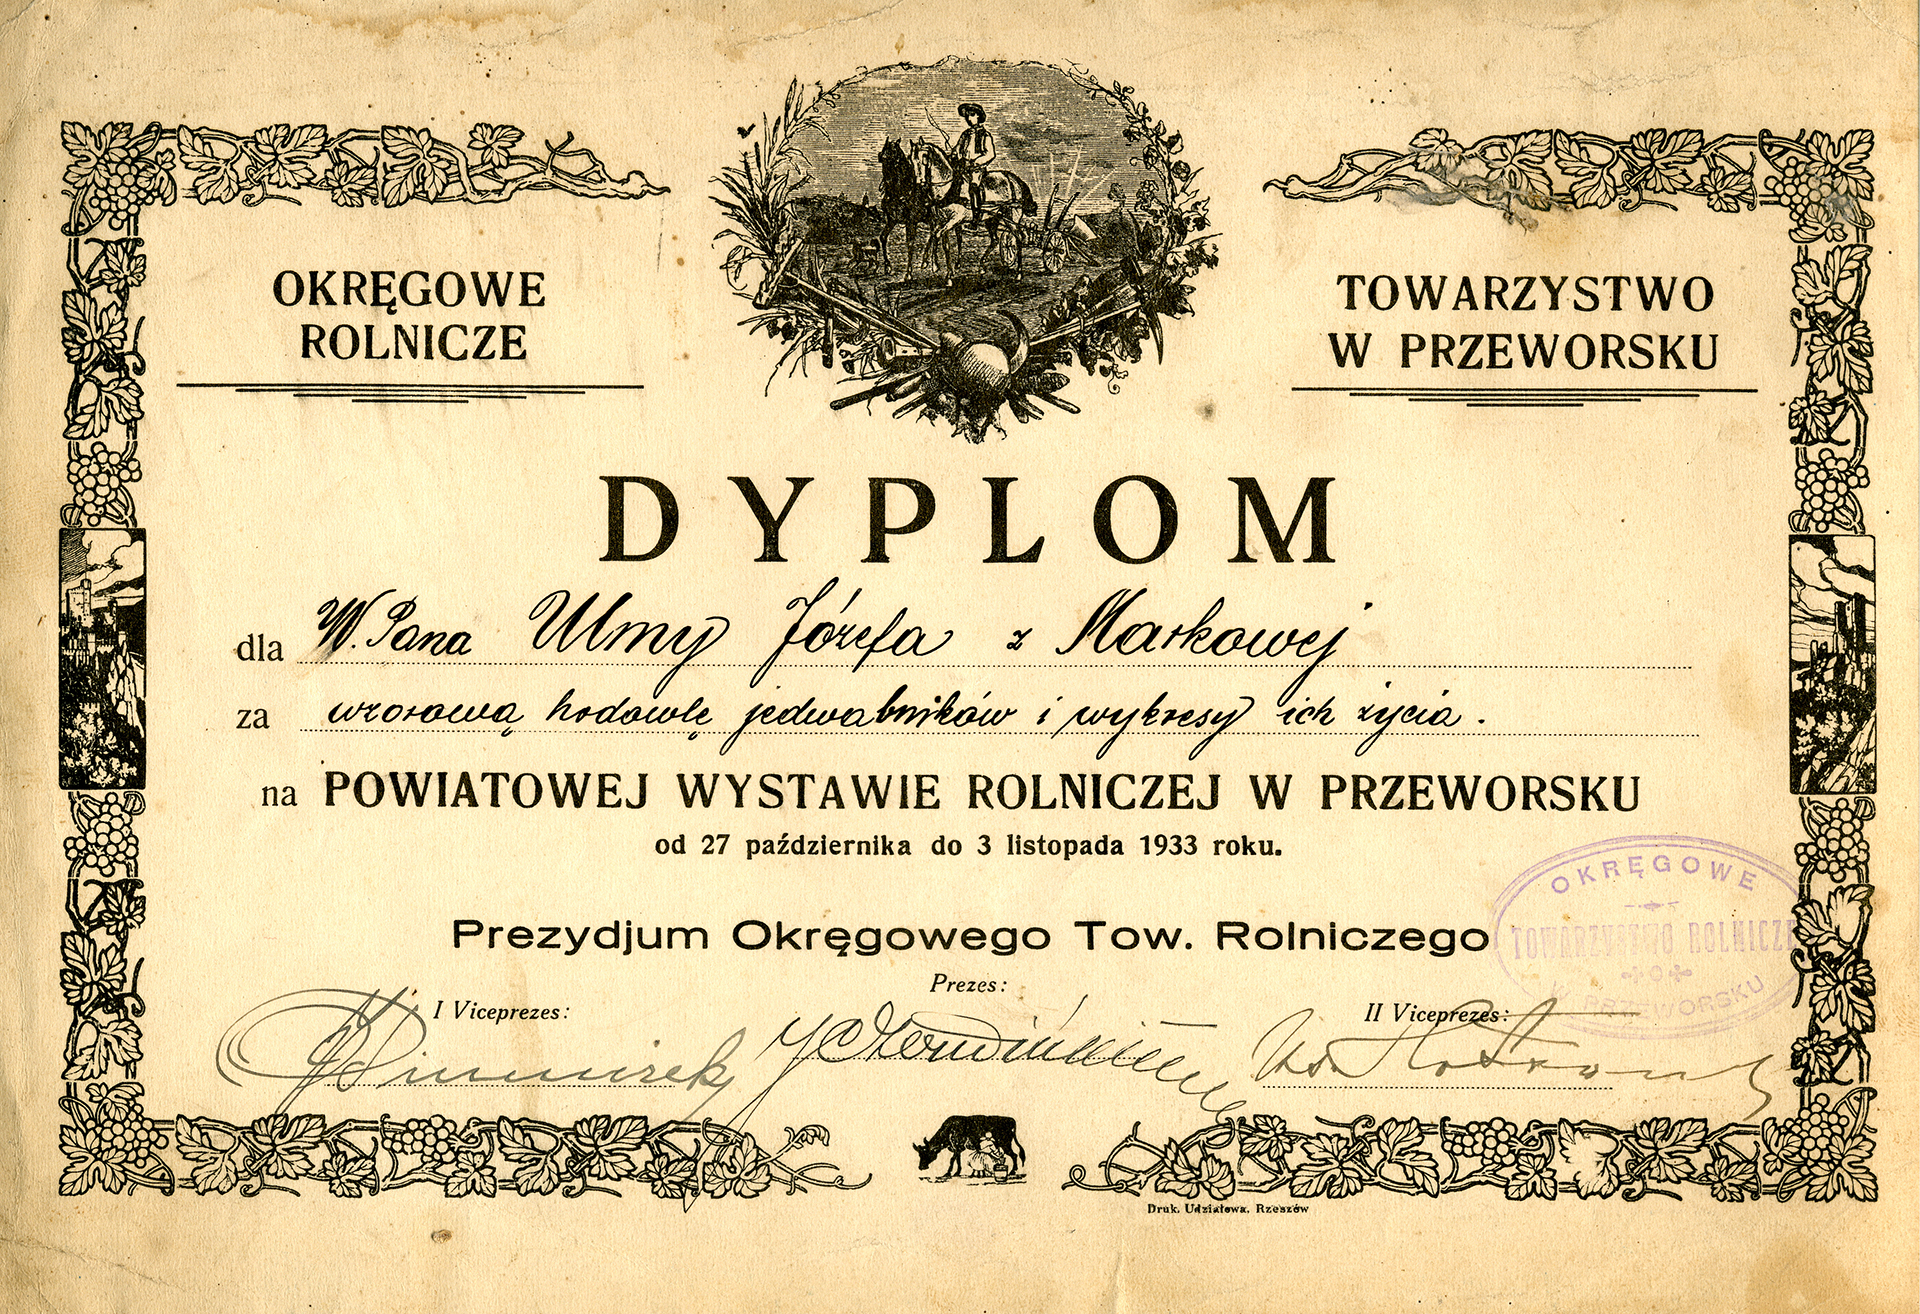 OKRĘGOWE
ROLNICZE
TOWARZYSTWO
W PRZEWORSKU
DYPLOM
dla W. Pana Ulmy Józefa z Markowej
za wzorową hodowlę jedwabników i wykresy ich życia.
na POWIATOWEJ WYSTAWIE ROLNICZEJ W PRZEWORSKU
od 27 października do 3 listopada 1933 roku.
Prezydjum Okręgowego Tow. Rolniczego
OKRĘGOWE
TOWARZYSTWO ROLNICZE
W PRZEWORSKU
Prezes:
I Viceprezes:
II Viceprezes:
Druk. Udziałowa. Rzeszów